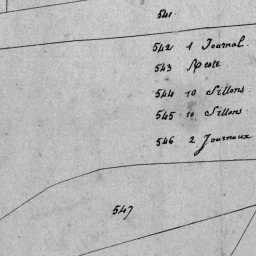 541.
542 1 Journal.
543
544 10 Sillons.
545 10 Sillons.
546 2 Journaux
547